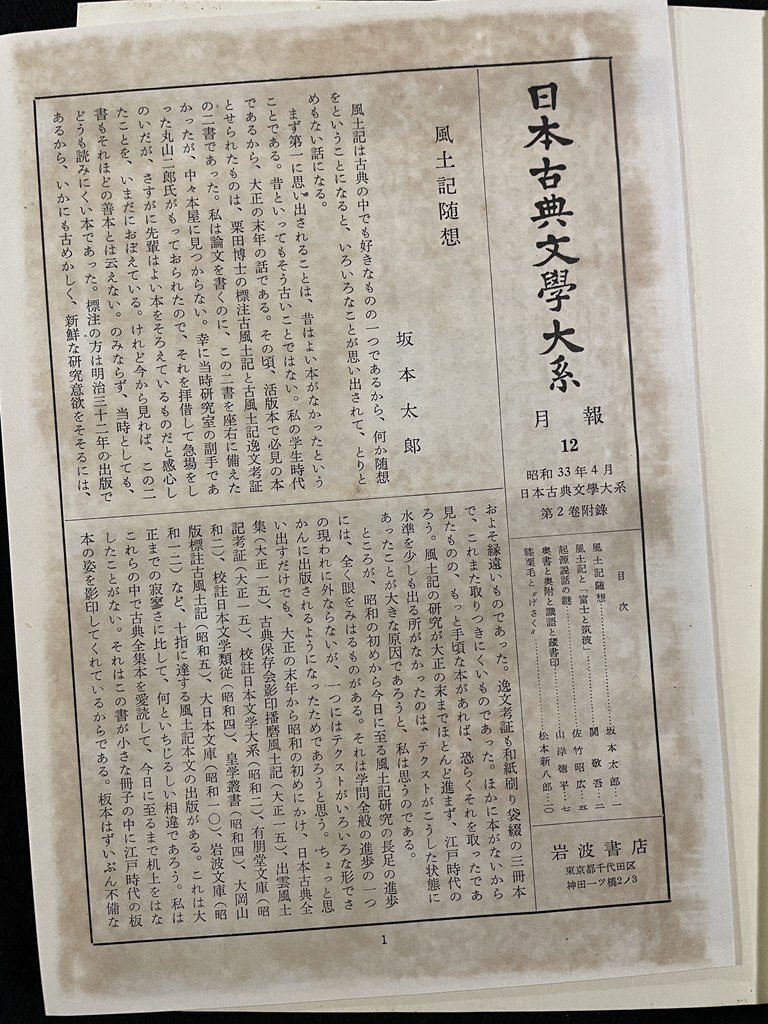 日本古典文學大系
月報
12
昭和33年4月
日本古典文學大系
第2巻附錄
目次
風土記随想…………坂本太郎…一
風土記と「富士と筑波」…………関敬吾…二
起源説話の謎…………佐竹昭広…五
奥書と奥附と識語と蔵書印…………山岸徳平…七
膝栗毛と〝げさく〟…………松本新八郎…一〇
岩波書店
東京都千代田区
神田一ツ橋2ノ3
風土記随想
坂本太郎
風土記は古典の中でも好きなものの一つであるから、何か随想
をということになると、いろいろなことが思い出されて、とりと
めもない話になる。
まず第一に思い出されることは、昔はよい本がなかったという
ことである。昔といってもそう古いことではない。私の学生時代
であるから、大正の末年の話である。その頃、活版本で必見の本
とせられたものは、栗田博士の標注古風土記と古風土記逸文考証
の二書であった。私は論文を書くのに、この二書を座右に備えた
かったが、中々本屋に見つからない。幸に当時研究室の副手であ
った丸山二郎氏がもっておられたので、それを拝借して急場をし
のいだが、さすがに先輩はよい本をそろえているものだと感心し
たことを、いまだにおぼえている。けれど今から見れば、この二
書もそれほどの善本とは云えない。のみならず、当時としても、
どうも読みにくい本であった。標注の方は明治三十二年の出版で
あるから、いかにも古めかしく、新鮮な研究意欲をそそるには、
およそ縁遠いものであった。逸文考証も和紙刷り袋綴の三冊本
で、これまた取りつきにくいものであった。ほかに本がないから
見たものの、もっと手頃な本があれば、恐らくそれを取ったであ
ろう。風土記の研究が大正の末までほとんど進まず、江戸時代の
水準を少しも出る所がなかったのは、テクストがこうした状態に
あったことが大きな原因であろうと、私は思うのである。
ところが、昭和の初めから今日に至る風土記研究の長足の進歩
には、全く眼をみはるものがある。それは学問全般の進歩の一つ
の現われに外ならないが、一つにはテクストがいろいろな形でさ
かんに出版されるようになったためであろうと思う。ちょっと思
い出すだけでも、大正の末年から昭和の初めにかけ、日本古典全
集(大正一五)、古典保存会影印播磨風土記(大正一五)、出雲風土
記考証(大正一五)、校註日本文学大系(昭和二)、有朋堂文庫(昭
和二)、校註日本文学類従(昭和四)、皇学叢書(昭和四)、大岡山
版標註古風土記(昭和五)、大日本文庫(昭和一〇)、岩波文庫(昭
和一二)など、十指に達する風土記本文の出版がある。これは大
正までの寂寥さに比して、何といちじるしい相違であろう。私は
これらの中で古典全集本を愛読して、今日に至るまで机上をはな
したことがない。それはこの書が小さな冊子の中に江戸時代の板
本の姿を影印してくれているからである。板本はずいぶん不備な
1